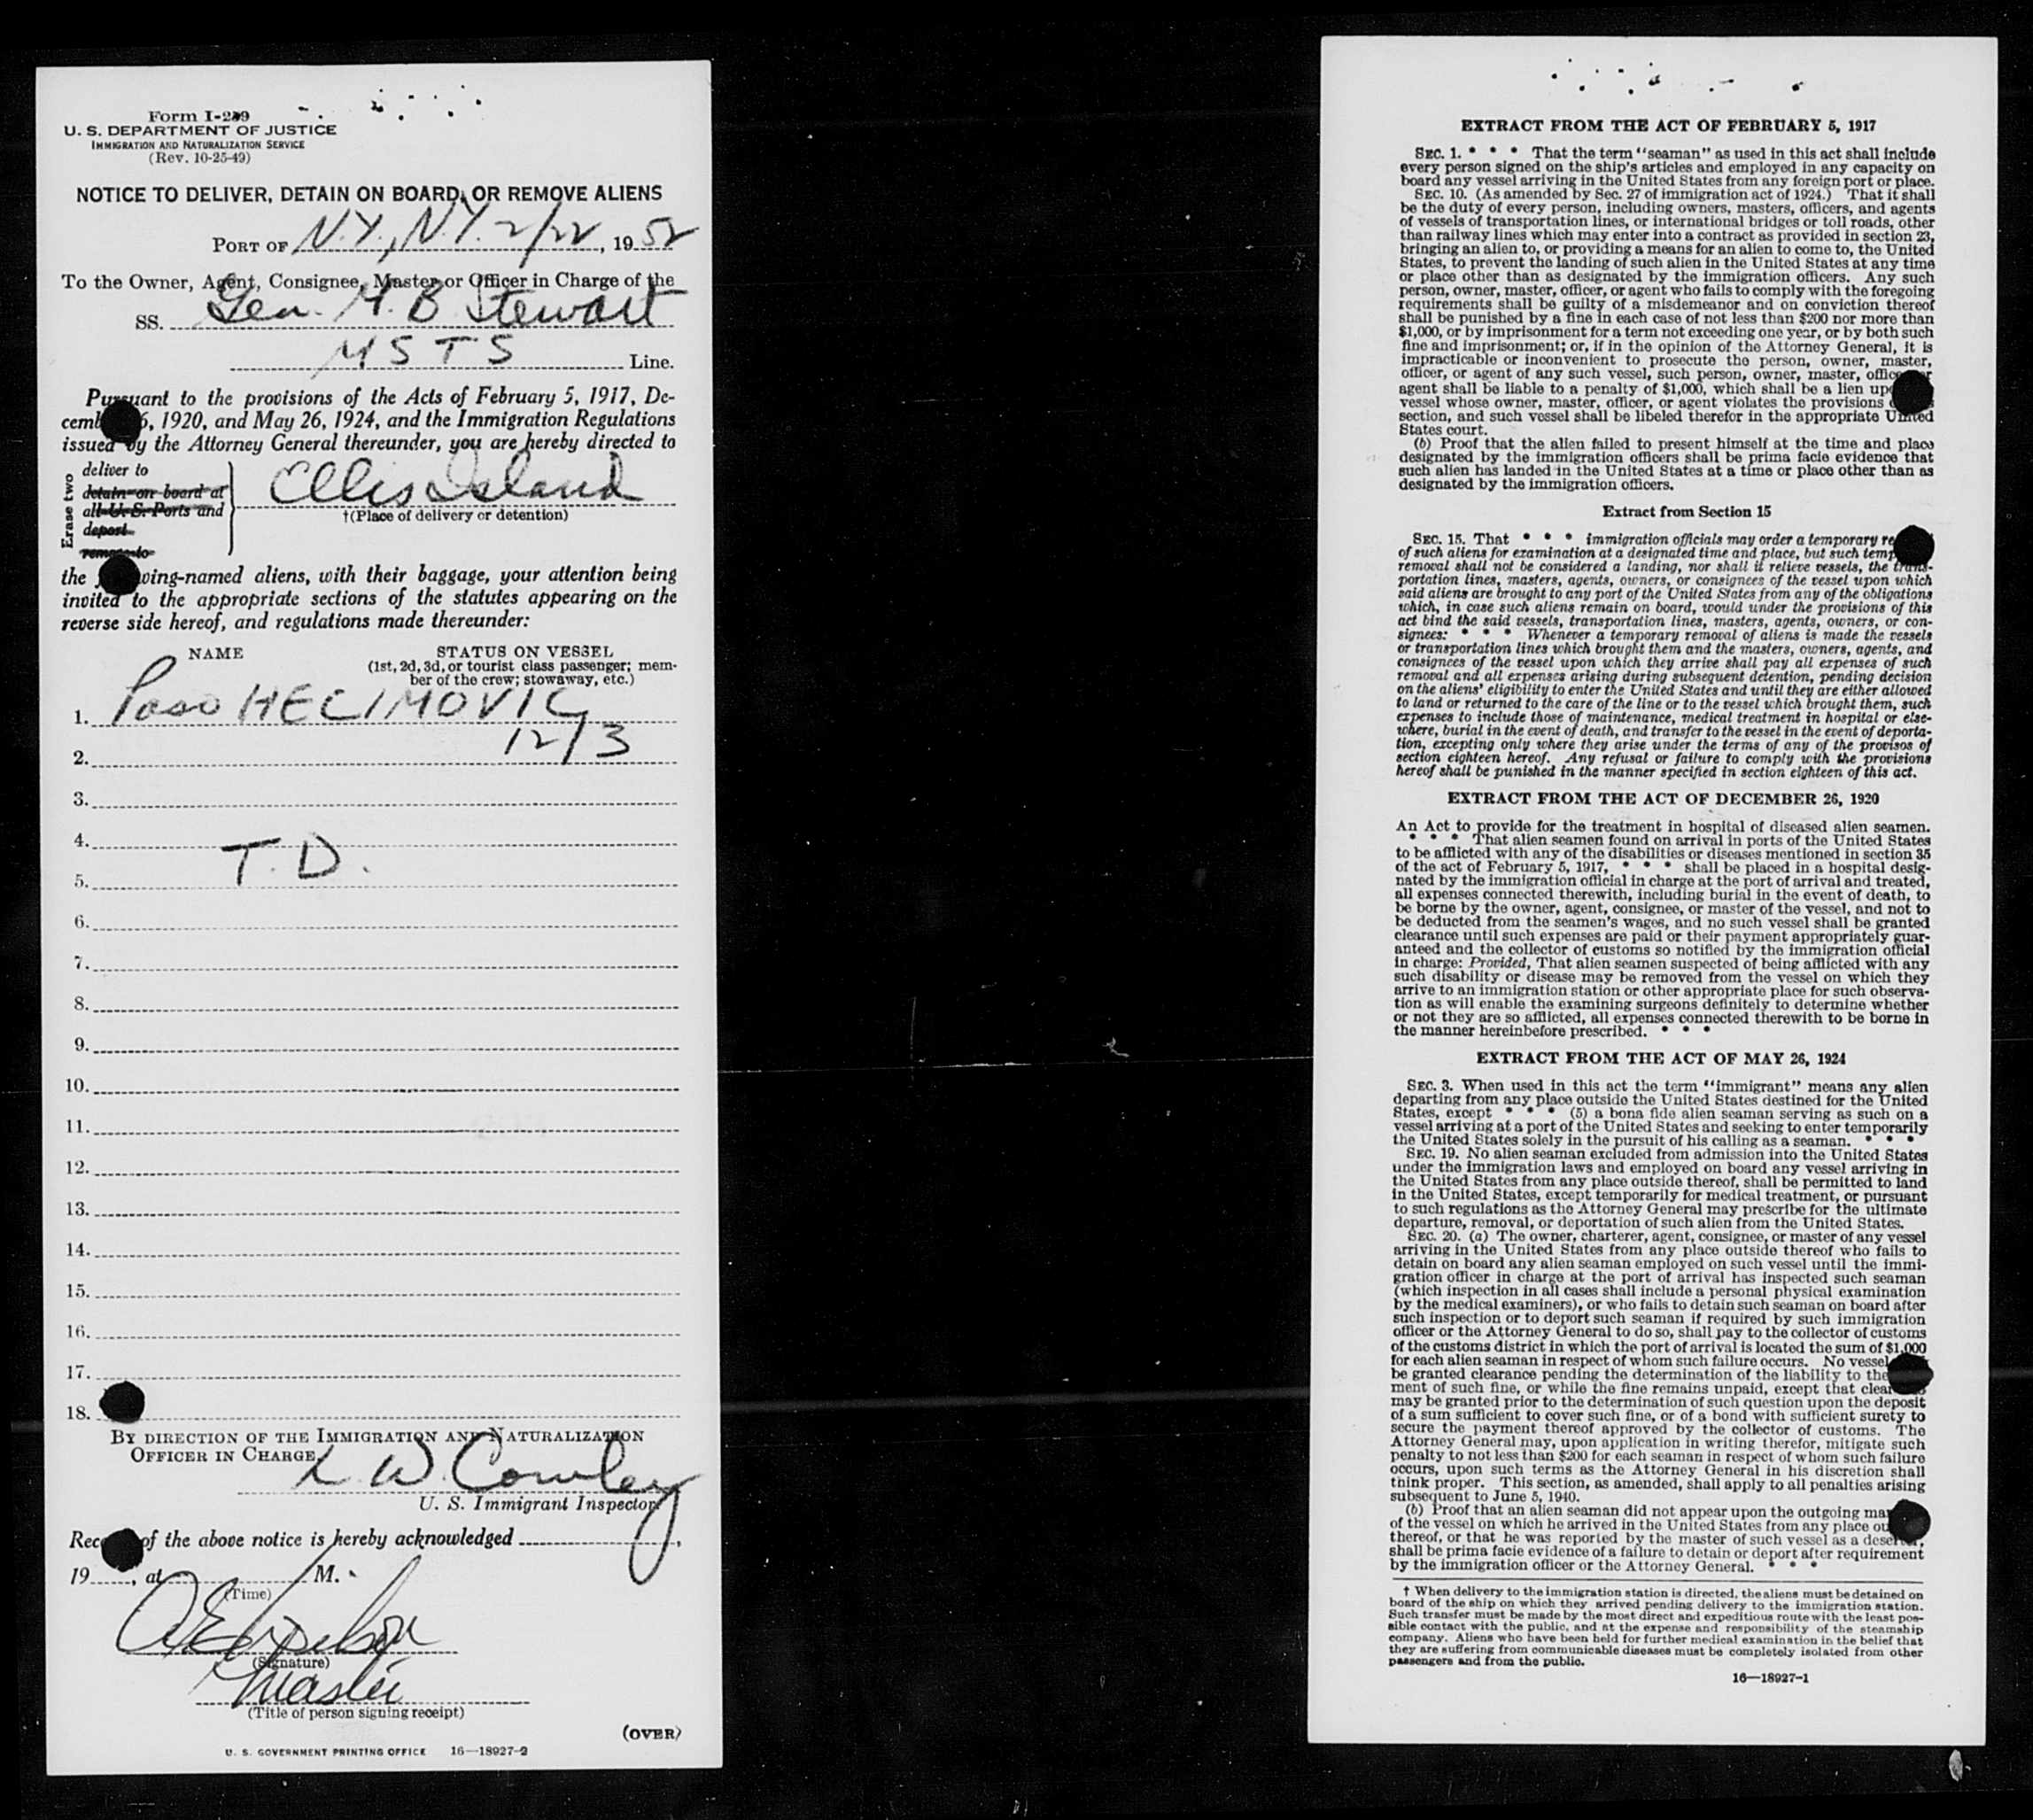 Form I-259
U. S. DEPARTMENT OF JUSTICE
IMMIGRATION AND NATURALIZATION SERVICE
(Rev. 10-25-49)
NOTICE TO DELIVER, DETAIN ON BOARD, OR REMOVE ALIENS
PORT OF N.Y., N.Y. 2/22, 1952
To the Owner, Agent, Consignee, Master or Officer in Charge of the
SS. Gen. M. B Stewart
MSTS Line.
Pursuant to the provisions of the Acts of February 5, 1917, De-
cemb 6, 1920, and May 26, 1924, and the Immigration Regulations
issued by the Attorney General thereunder, you are hereby directed to
Erase two
deliver to
detain on board at
all U. S. Ports and
deport
remove to
Ellis Island
†(Place of delivery or detention)
the wing-named aliens, with their baggage, your attention being
invited to the appropriate sections of the statutes appearing on the
reverse side hereof, and regulations made thereunder:
NAME
STATUS ON VESSEL
(1st, 2d, 3d, or tourist class passenger; mem-
ber of the crew; stowaway, etc.)
1. Paso HECIMOVIC
12/3
2.
3.
4.
T. D.
5.
6.
7.
8.
9.
10.
11.
12.
13.
14.
15.
16.
17.
18.
BY DIRECTION OF THE IMMIGRATION AND NATURALIZATION
OFFICER IN CHARGE.
L W. Cowley
U. S. Immigrant Inspector.
Rec of the above notice is hereby acknowledged ,
19 , at M.
(Time)
(Signature)
Master
(Title of person signing receipt)
(OVER)
U. S. GOVERNMENT PRINTING OFFICE 16—18927-2
EXTRACT FROM THE ACT OF FEBRUARY 5, 1917
SEC. 1. * * * That the term "seaman" as used in this act shall include
every person signed on the ship's articles and employed in any capacity on
board any vessel arriving in the United States from any foreign port or place.
SEC. 10. (As amended by Sec. 27 of immigration act of 1924.) That it shall
be the duty of every person, including owners, masters, officers, and agents
of vessels of transportation lines, or international bridges or toll roads, other
than railway lines which may enter into a contract as provided in section 23,
bringing an alien to, or providing a means for an alien to come to, the United
States, to prevent the landing of such alien in the United States at any time
or place other than as designated by the immigration officers. Any such
person, owner, master, officer, or agent who fails to comply with the foregoing
requirements shall be guilty of a misdemeanor and on conviction thereof
shall be punished by a fine in each case of not less than $200 nor more than
$1,000, or by imprisonment for a term not exceeding one year, or by both such
fine and imprisonment; or, if in the opinion of the Attorney General, it is
impracticable or inconvenient to prosecute the person, owner, master,
officer, or agent of any such vessel, such person, owner, master, office or
agent shall be liable to a penalty of $1,000, which shall be a lien up
vessel whose owner, master, officer, or agent violates the provisions
section, and such vessel shall be libeled therefor in the appropriate United
States court.
(b) Proof that the alien failed to present himself at the time and place
designated by the immigration officers shall be prima facie evidence that
such alien has landed in the United States at a time or place other than as
designated by the immigration officers.
Extract from Section 15
SEC. 15. That * * * immigration officials may order a temporary re
of such aliens for examination at a designated time and place, but such temp
removal shall not be considered a landing, nor shall it relieve vessels, the trans-
portation lines, masters, agents, owners, or consignees of the vessel upon which
said aliens are brought to any port of the United States from any of the obligations
which, in case such aliens remain on board, would under the provisions of this
act bind the said vessels, transportation lines, masters, agents, owners, or con-
signees: * * * Whenever a temporary removal of aliens is made the vessels
or transportation lines which brought them and the masters, owners, agents, and
consignees of the vessel upon which they arrive shall pay all expenses of such
removal and all expenses arising during subsequent detention, pending decision
on the aliens' eligibility to enter the United States and until they are either allowed
to land or returned to the care of the line or to the vessel which brought them, such
expenses to include those of maintenance, medical treatment in hospital or else-
where, burial in the event of death, and transfer to the vessel in the event of deporta-
tion, excepting only where they arise under the terms of any of the provisos of
section eighteen hereof. Any refusal or failure to comply with the provisions
hereof shall be punished in the manner specified in section eighteen of this act.
EXTRACT FROM THE ACT OF DECEMBER 26, 1920
An Act to provide for the treatment in hospital of diseased alien seamen.
* * * That alien seamen found on arrival in ports of the United States
to be afflicted with any of the disabilities or diseases mentioned in section 35
of the act of February 5, 1917, * * * shall be placed in a hospital desig-
nated by the immigration official in charge at the port of arrival and treated,
all expenses connected therewith, including burial in the event of death, to
be borne by the owner, agent, consignee, or master of the vessel, and not to
be deducted from the seamen's wages, and no such vessel shall be granted
clearance until such expenses are paid or their payment appropriately guar-
anteed and the collector of customs so notified by the immigration official
in charge: Provided, That alien seamen suspected of being afflicted with any
such disability or disease may be removed from the vessel on which they
arrive to an immigration station or other appropriate place for such observa-
tion as will enable the examining surgeons definitely to determine whether
or not they are so afflicted, all expenses connected therewith to be borne in
the manner hereinbefore prescribed. * * *
EXTRACT FROM THE ACT OF MAY 26, 1924
SEC. 3. When used in this act the term "immigrant" means any alien
departing from any place outside the United States destined for the United
States, except * * * (5) a bona fide alien seaman serving as such on a
vessel arriving at a port of the United States and seeking to enter temporarily
the United States solely in the pursuit of his calling as a seaman. * * *
SEC. 19. No alien seaman excluded from admission into the United States
under the immigration laws and employed on board any vessel arriving in
the United States from any place outside thereof, shall be permitted to land
in the United States, except temporarily for medical treatment, or pursuant
to such regulations as the Attorney General may prescribe for the ultimate
departure, removal, or deportation of such alien from the United States.
SEC. 20. (a) The owner, charterer, agent, consignee, or master of any vessel
arriving in the United States from any place outside thereof who fails to
detain on board any alien seaman employed on such vessel until the immi-
gration officer in charge at the port of arrival has inspected such seaman
(which inspection in all cases shall include a personal physical examination
by the medical examiners), or who fails to detain such seaman on board after
such inspection or to deport such seaman if required by such immigration
officer or the Attorney General to do so, shall pay to the collector of customs
of the customs district in which the port of arrival is located the sum of $1,000
for each alien seaman in respect of whom such failure occurs. No vessel
be granted clearance pending the determination of the liability to the
ment of such fine, or while the fine remains unpaid, except that clear
may be granted prior to the determination of such question upon the deposit
of a sum sufficient to cover such fine, or of a bond with sufficient surety to
secure the payment thereof approved by the collector of customs. The
Attorney General may, upon application in writing therefor, mitigate such
penalty to not less than $200 for each seaman in respect of whom such failure
occurs, upon such terms as the Attorney General in his discretion shall
think proper. This section, as amended, shall apply to all penalties arising
subsequent to June 5, 1940.
(b) Proof that an alien seaman did not appear upon the outgoing ma
of the vessel on which he arrived in the United States from any place ou
thereof, or that he was reported by the master of such vessel as a deserter,
shall be prima facie evidence of a failure to detain or deport after requirement
by the immigration officer or the Attorney General. * * *
† When delivery to the immigration station is directed, the aliens must be detained on
board of the ship on which they arrived pending delivery to the immigration station.
Such transfer must be made by the most direct and expeditious route with the least pos-
sible contact with the public, and at the expense and responsibility of the steamship
company. Aliens who have been held for further medical examination in the belief that
they are suffering from communicable diseases must be completely isolated from other
passengers and from the public.
16—18927-1